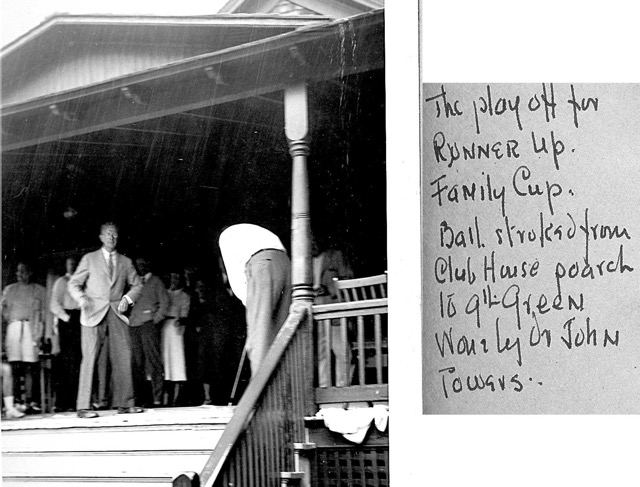 The play off for
RUNNER Up.
Family Cup.
Ball. stroked from
Club House poarch
to 9th Green
Won by Dr John
Towers..